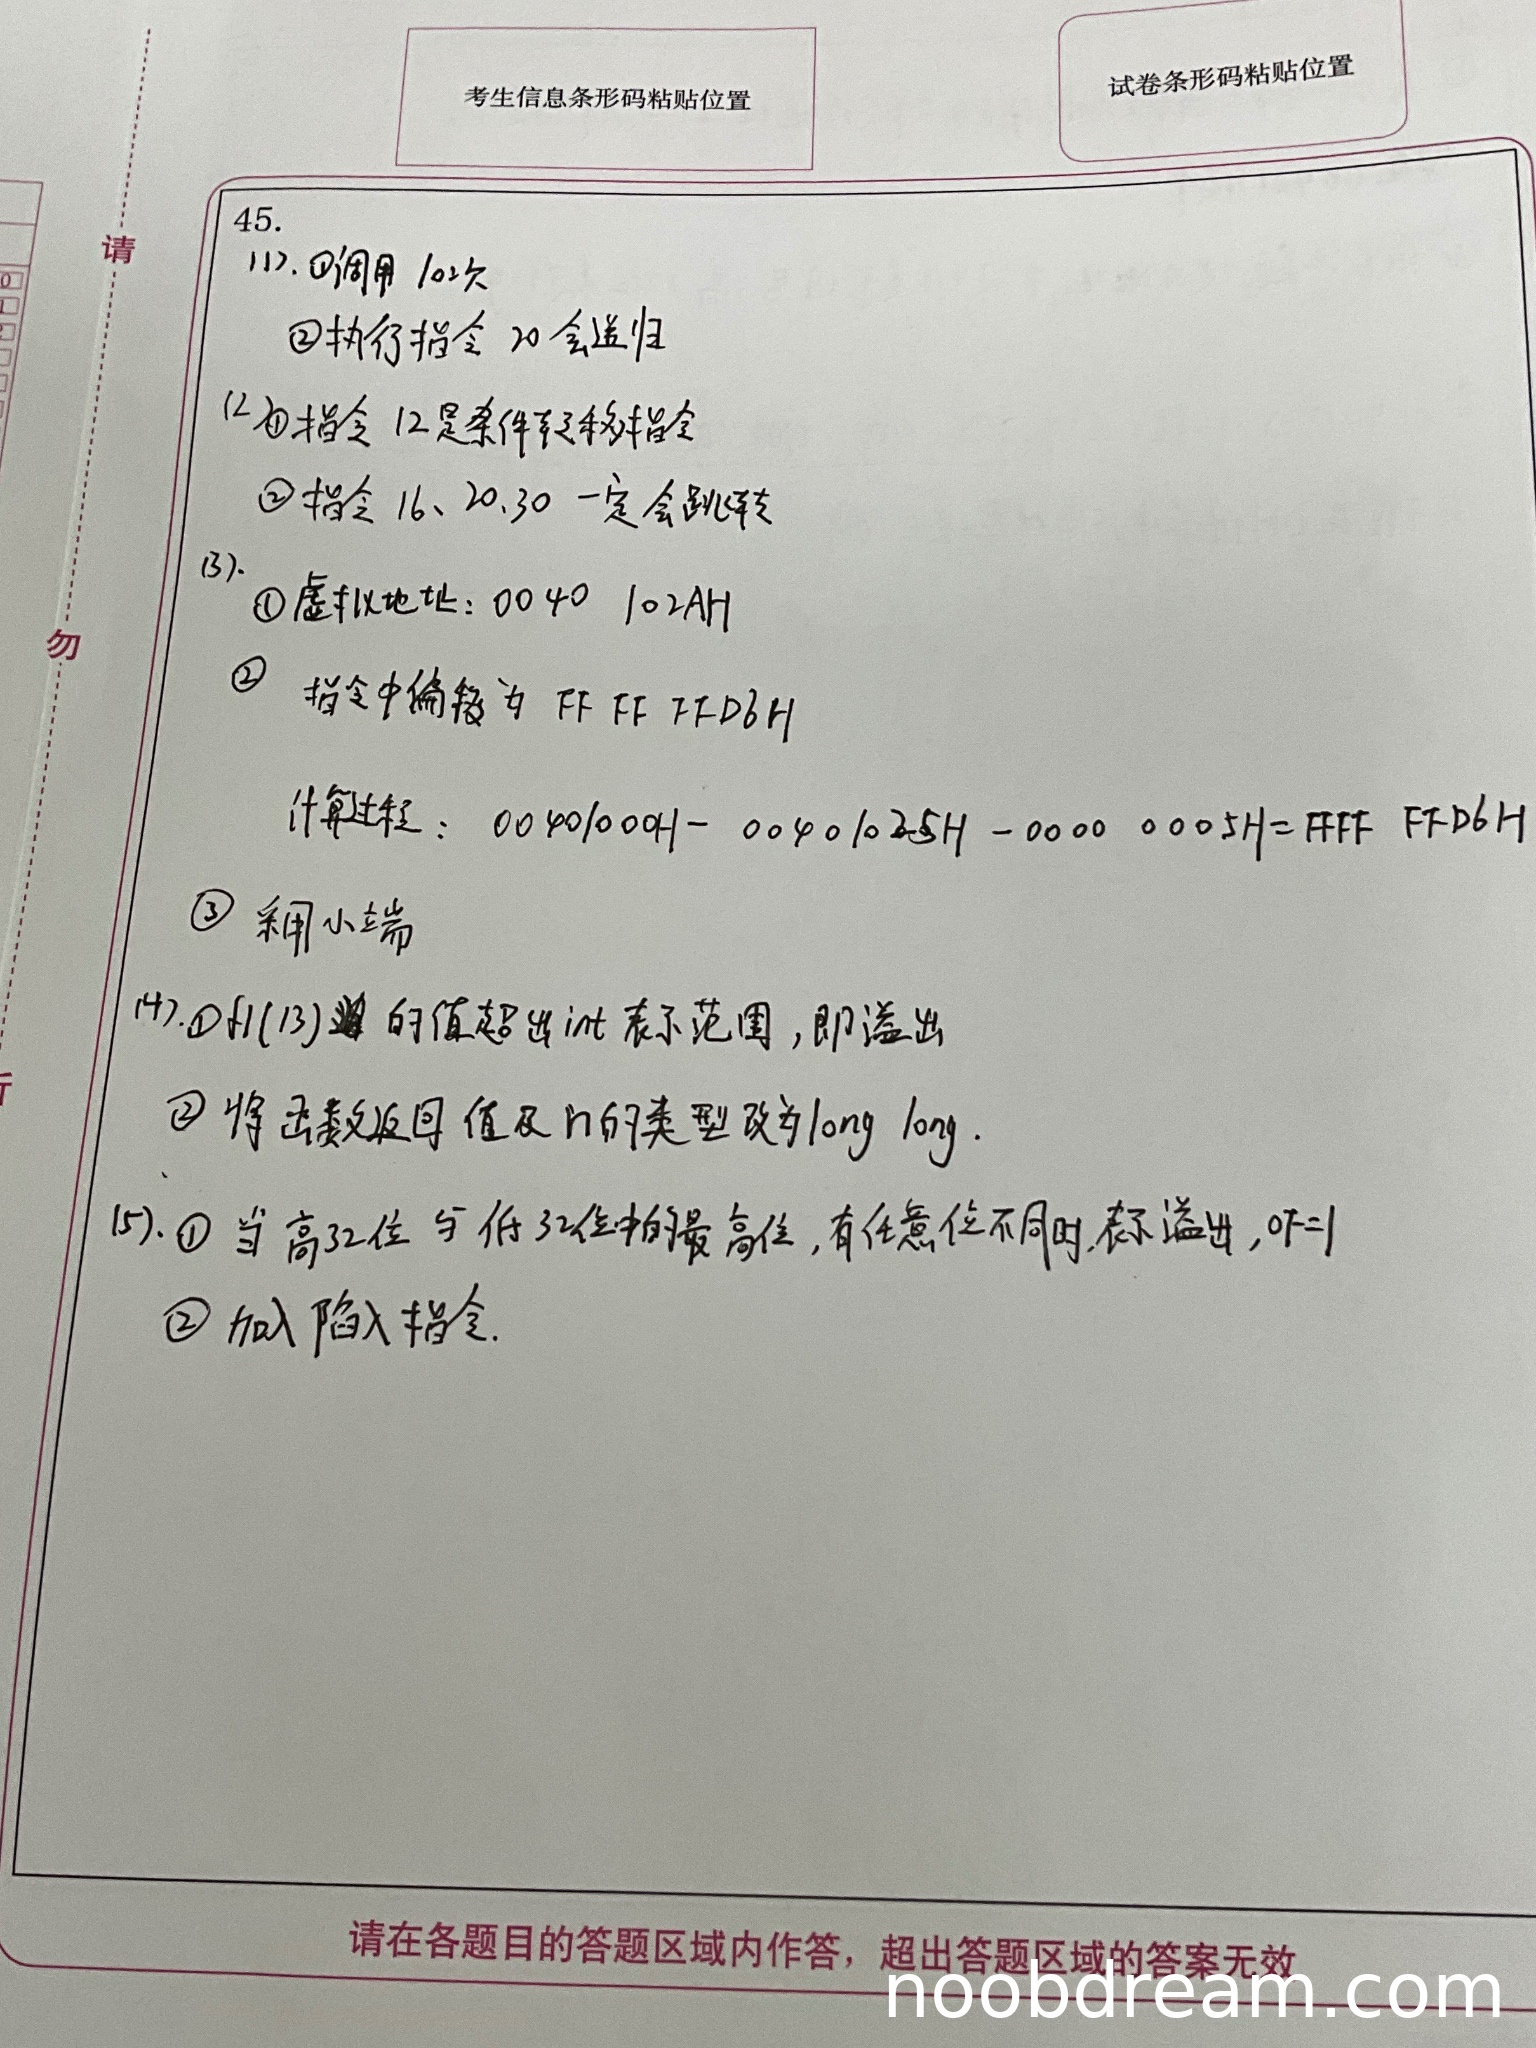 考生信息条形码粘贴位置
试卷条形码粘贴位置
请
勿
45.
(1). ①调用 102次
②执行指令 20 会递归
(2) ①指令 12是条件转移指令
②指令 16、20、30 一定会跳转
(3).
①虚拟地址：0040 102AH
② 指令中偏移为 FF FF FFD6H
计算过程： 00401000H - 00401025H - 0000 0005H = FFFF FFD6H
③ 采用小端
(4). ①f1(13) 的值超出int 表示范围，即溢出
② 将函数返回值及n的类型改为long long.
(5). ① 当高32位与低32位中的最高位，有任意位不同时，表示溢出，OF=1
② 加入陷入指令.
请在各题目的答题区域内作答，超出答题区域的答案无效
noobdream.com